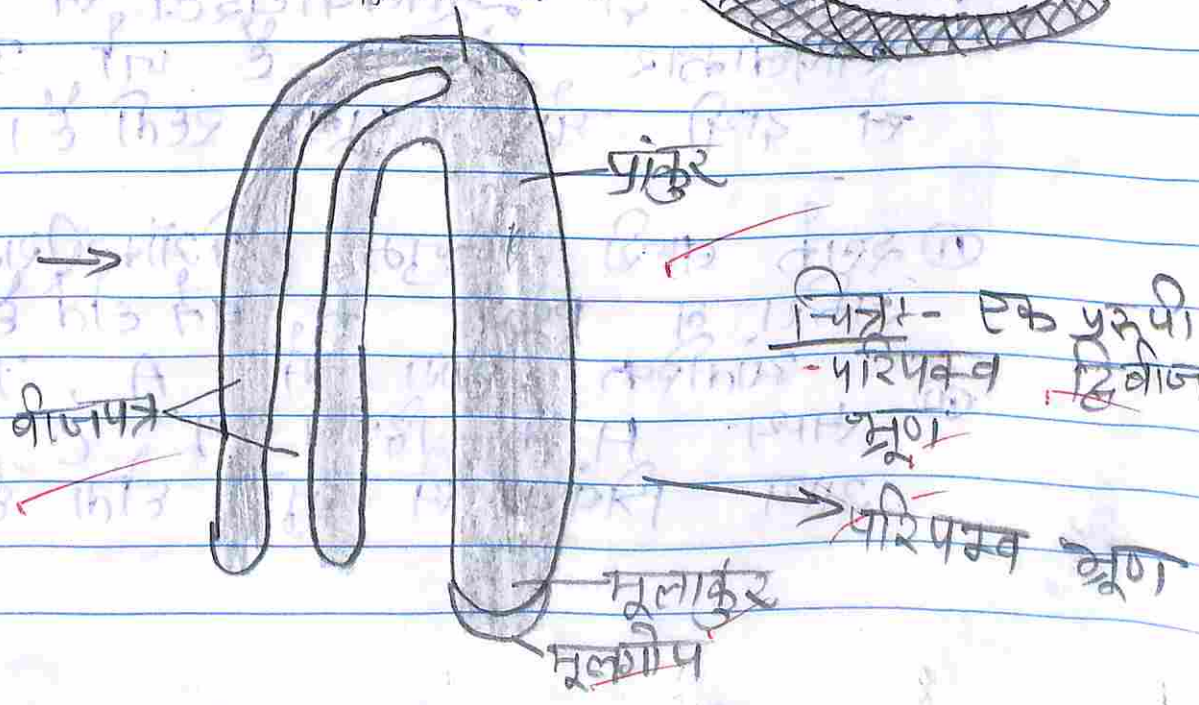 प्रांकुर
चित्र:- एक प्ररूपी
परिपक्व द्विबीज
भ्रूण
बीजपत्र
परिपक्व भ्रूण
मूलाकुंर
मूलगोप